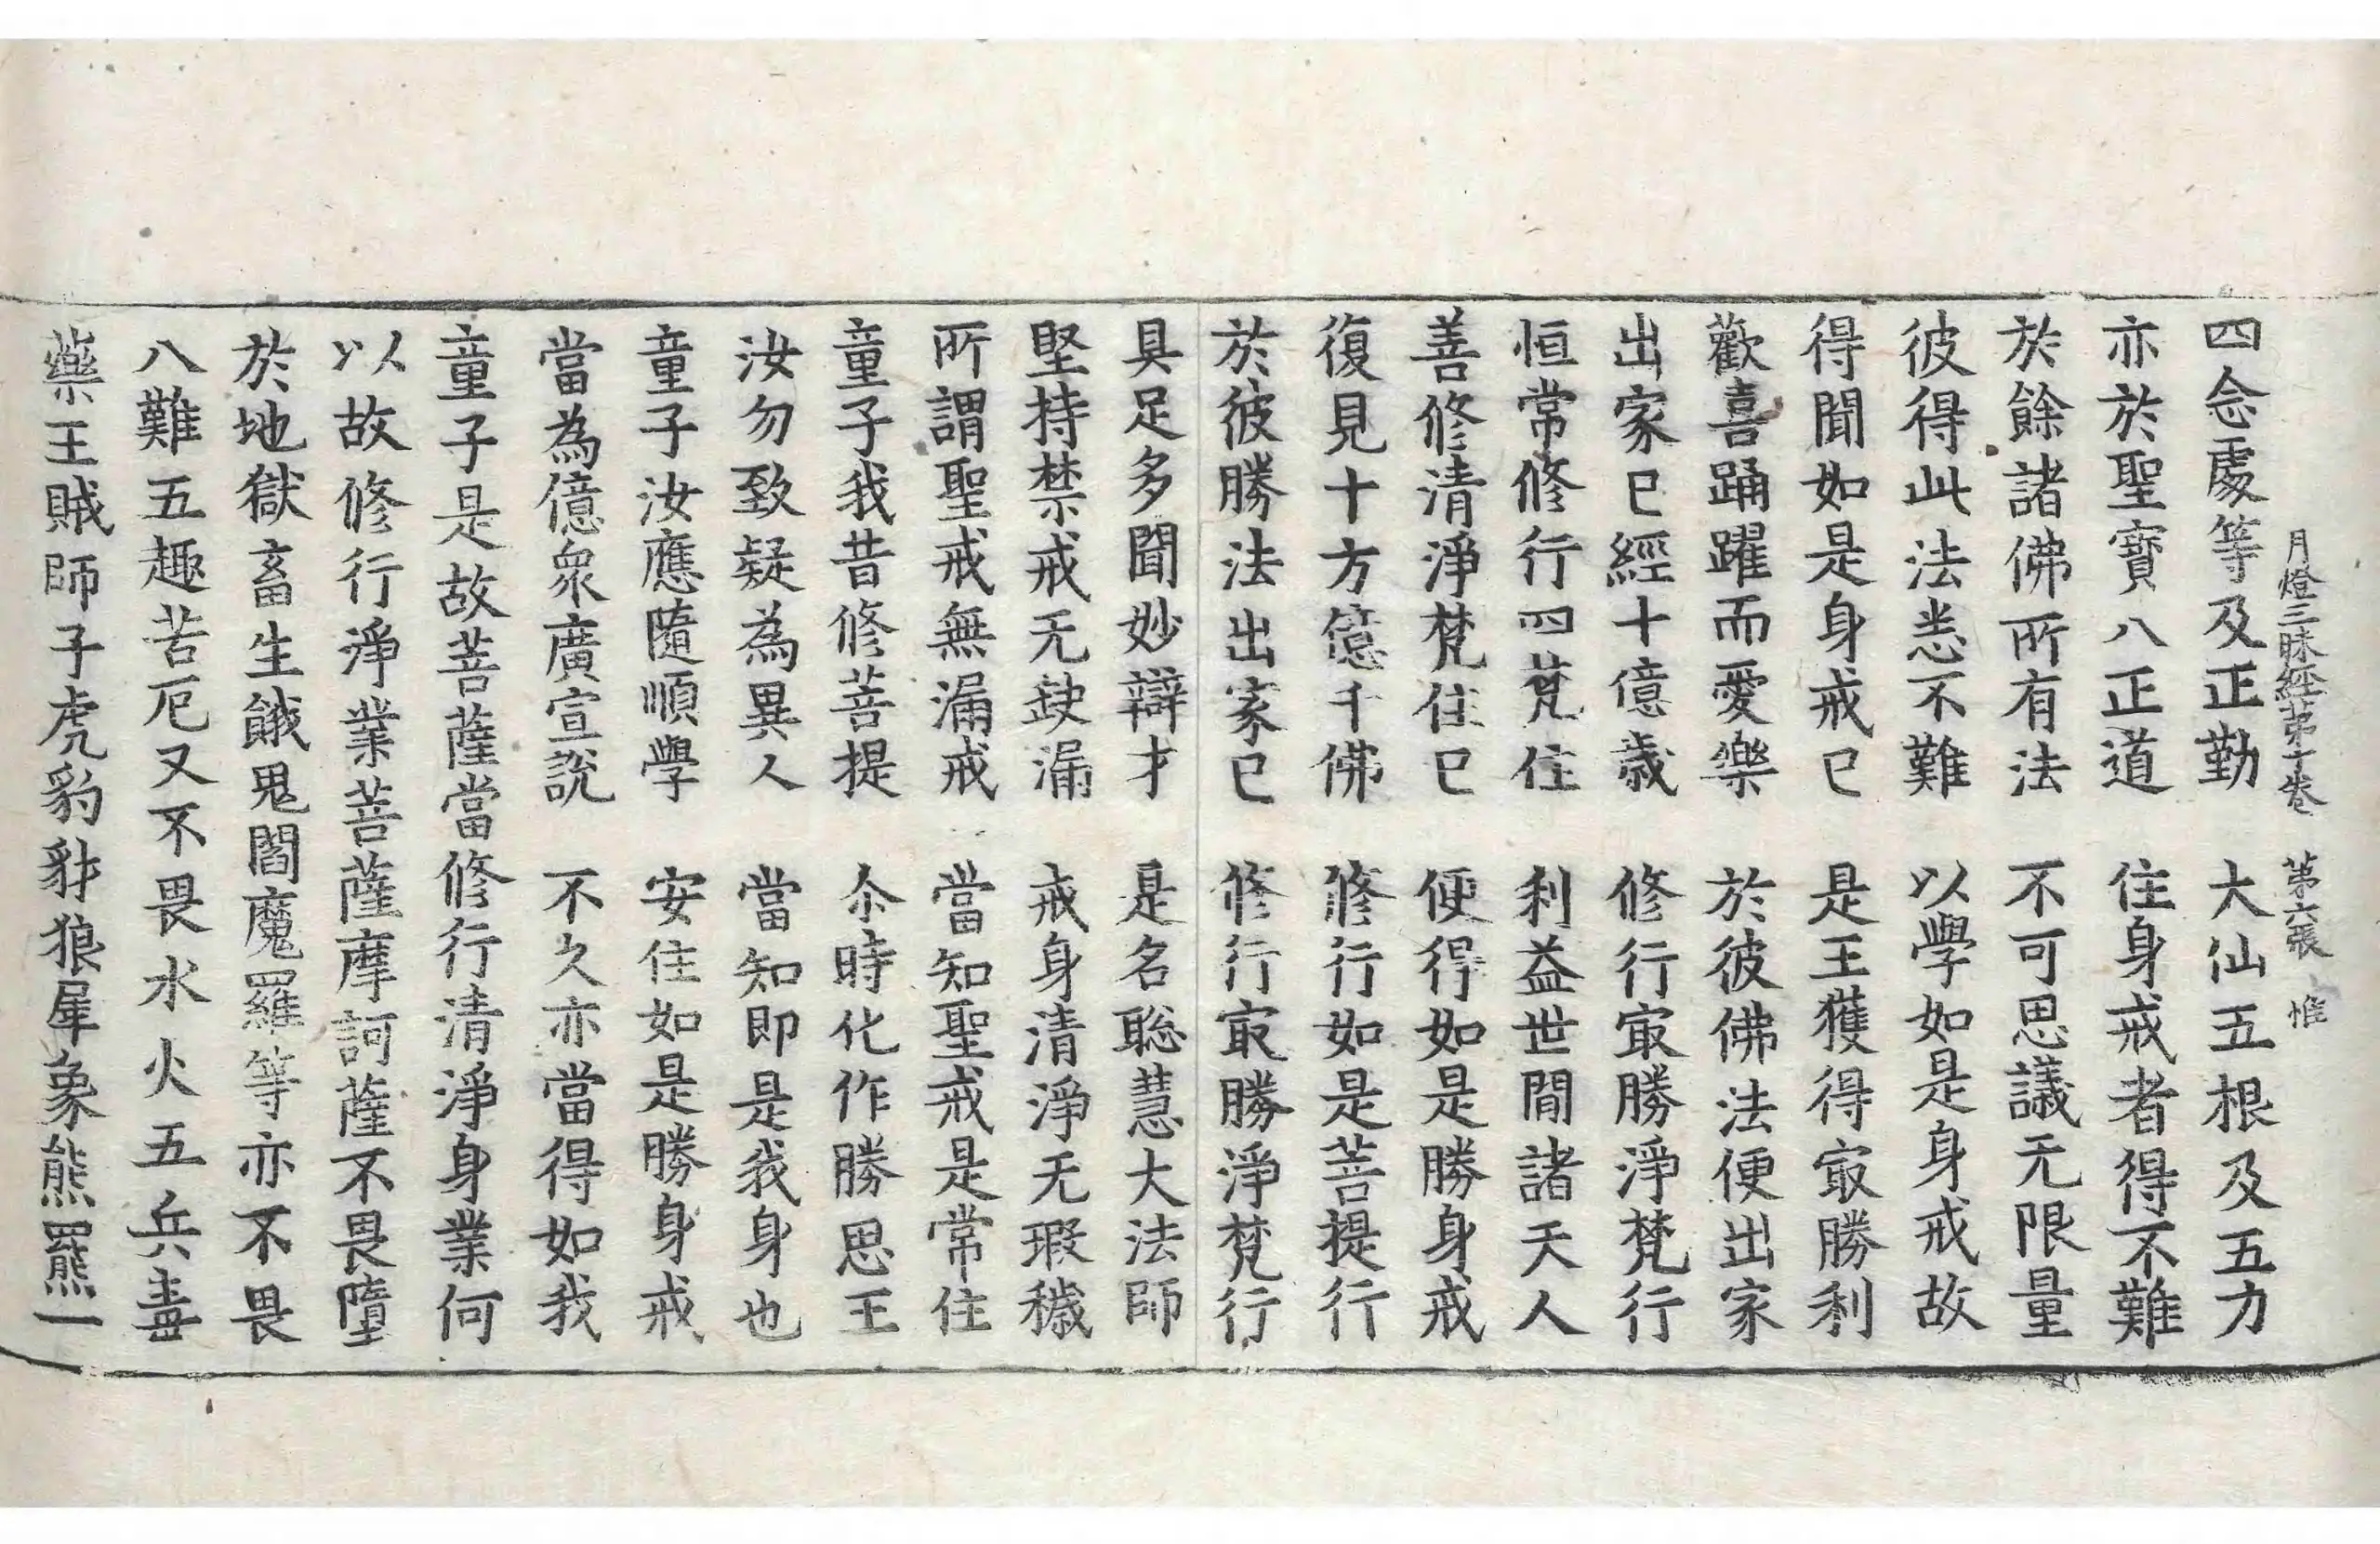 月燈三昧經第十卷　第六張　惟
四念處等及正勤　大仙五根及五力
亦於聖寶八正道　住身戒者得不難
於餘諸佛所有法　不可思議无限量
彼得此法悉不難　以學如是身戒故
得聞如是身戒已　是王獲得冣勝利
歡喜踊躍而愛樂　於彼佛法便出家
出家已經十億歲　修行冣勝淨梵行
恒常修行四梵住　利益世間諸天人
善修清淨梵住已　便得如是勝身戒
復見十方億千佛　修行如是菩提行
於彼勝法出家已　修行冣勝淨梵行
具足多聞妙辯才　是名聡慧大法師
堅持禁戒无缺漏　戒身清淨无瑕穢
所謂聖戒無漏戒　當知聖戒是常住
童子我昔修菩提　尒時化作勝思王
汝勿致疑為異人　當知即是我身也
童子汝應隨順學　安住如是勝身戒
當為億衆廣宣說　不久亦當得如我
童子是故菩薩當修行清淨身業何
以故修行淨業菩薩摩訶薩不畏墮
於地獄畜生餓鬼閻魔羅等亦不畏
八難五趣苦厄又不畏水火五兵毒
藥王賊師子虎豹豺狼犀象熊羆一